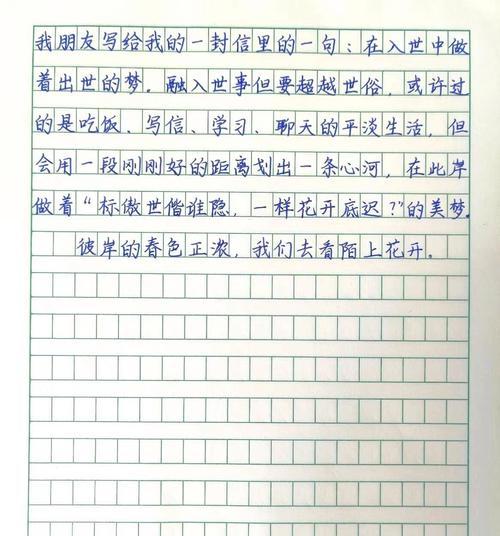 我朋友写给我的一封信里的一句：在入世中做
着出世的梦．融入世事但要超越世俗，或许过
的是吃饭、写信、学习、聊天的平淡生活，但
会用一段刚刚好的距离划出一条心河，在此岸
做着“标傲世偕谁隐，一样花开底迟？”的美梦.
彼岸的春色正浓，我们去看陌上花开。